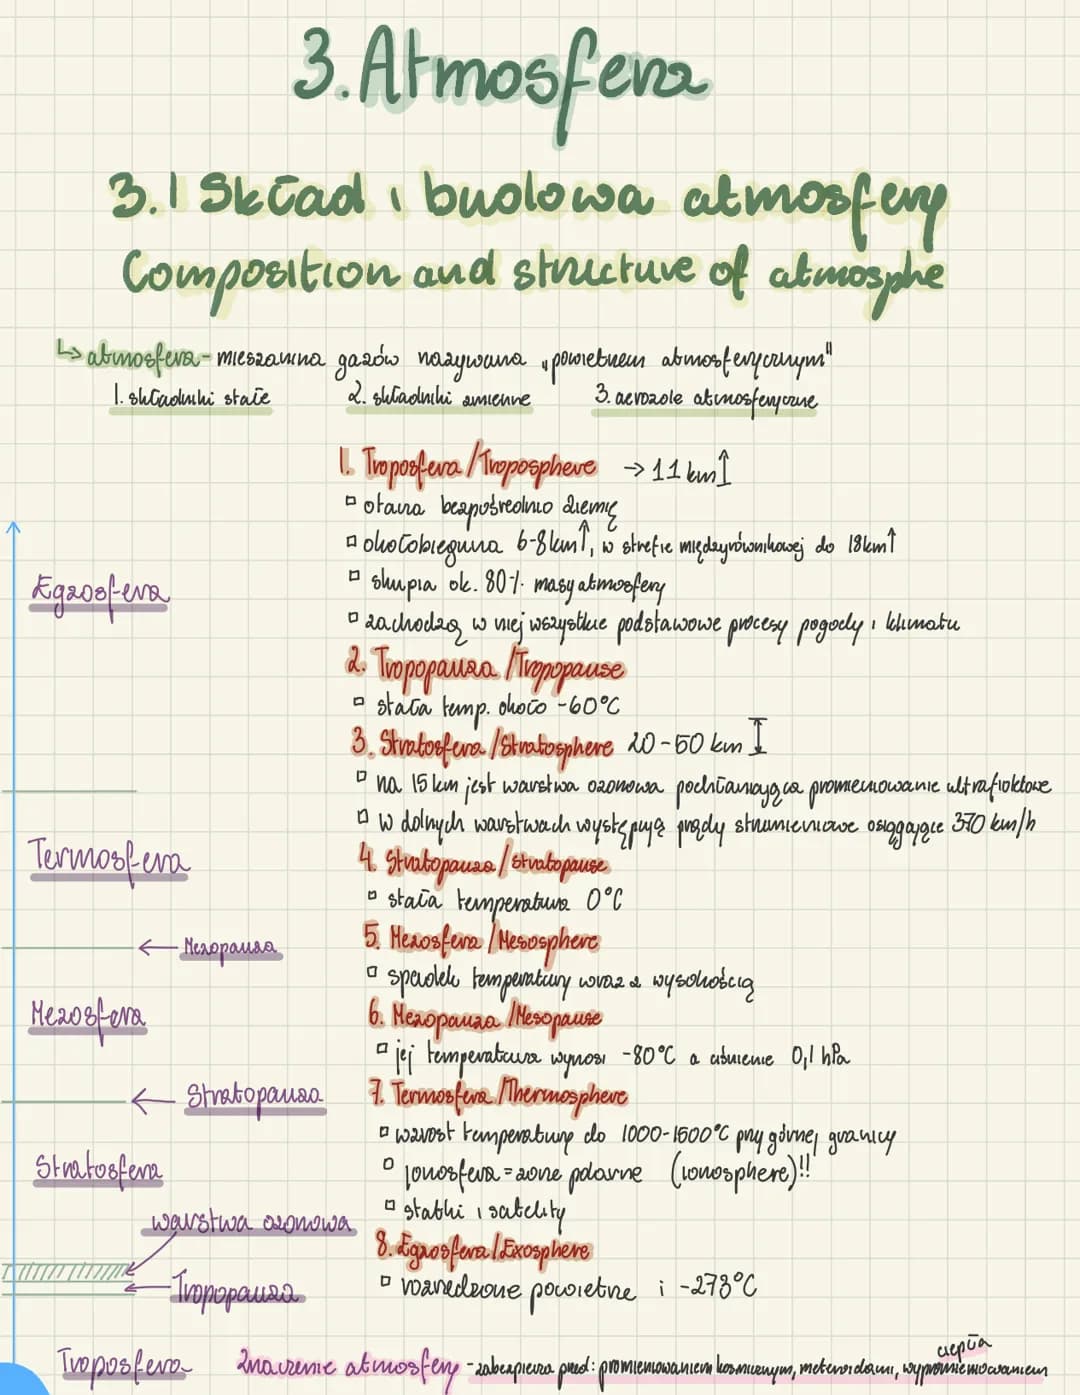 3. Atmosfera
3.1 Skład i budowa atmosfery
Composition and structure of atmosphe
↳ atmosfera - mieszanina gazów nazywana „powietrzem atmosferycznym"
1. składniki stałe 2. składniki zmienne 3. aerozole atmosferyczne
1. Troposfera / Troposphere → 11 km ↑
▫ otacza bezpośrednio Ziemię
▫ okołobieguna 6-8 km ↑, w strefie międzyrównikowej do 18 km ↑
▫ skupia ok. 80% masy atmosfery
▫ zachodzą w niej wszystkie podstawowe procesy pogody i klimatu
2. Tropopauza / Tropopause
▫ stała temp. około -60°C
3. Stratosfera / Stratosphere 20-50 km
▫ na 15 km jest warstwa ozonowa pochłaniająca promieniowanie ultrafioletowe
▫ w dolnych warstwach występują prądy strumieniowe osiągające 370 km/h
4. Stratopauza / stratopause
▫ stała temperatura 0°C
5. Mezosfera / Mesosphere
▫ spadek temperatury wraz z wysokością
6. Mezopauza / Mesopause
▫ jej temperatura wynosi -80°C a ciśnienie 0,1 hPa
7. Termosfera / Thermosphere
▫ wzrost temperatury do 1000-1500°C przy górnej granicy
▫ jonosfera = zorze polarne (ionosphere)!!
▫ statki i satelity
8. Egzosfera / Exosphere
▫ rozrzedzone powietrze i -273°C
Egzosfera
Termosfera
← Mezopauza
Mezosfera
← Stratopauza
Stratosfera
warstwa ozonowa
← Tropopauza
Troposfera
Znaczenie atmosfery - zabezpiecza przed: promieniowaniem kosmicznym, meteoroidami, wypromieniowaniem
ciepła